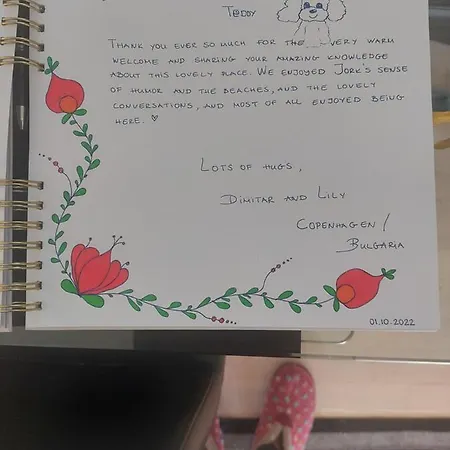 Teddy
Thank you ever so much for the very warm
welcome and sharing your amazing knowledge
about this lovely place. We enjoyed Jork's sense
of humor and the beaches, and the lovely
conversations, and most of all enjoyed being
here. ♡
Lots of hugs,
Dimitar and Lily
Copenhagen /
Bulgaria
01.10.2022